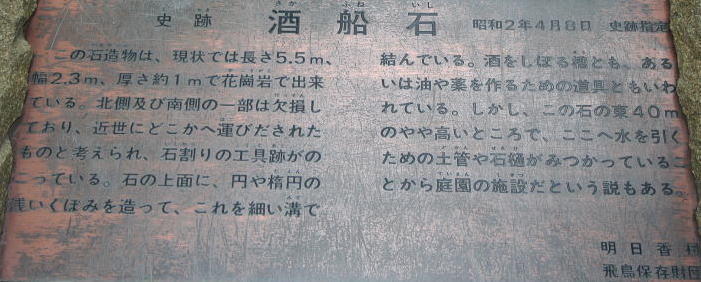 史跡 酒船石 昭和2年4月8日 史跡指定
さか ふね いし
この石造物は、現状では長さ5.5m、
幅2.3m、厚さ約1mで花崗岩で出来
ている。北側及び南側の一部は欠損し
ており、近世にどこかへ運びだされた
ものと考えられ、石割りの工具跡がの
こっている。石の上面に、円や楕円の
浅いくぼみを造って、これを細い溝で
結んでいる。酒をしぼる槽とも、ある
いは油や薬を作るための道具ともいわ
れている。しかし、この石の東40m
のやや高いところで、ここへ水を引く
ための土管や石樋がみつかっているこ
とから庭園の施設だという説もある。
明日香村
飛鳥保存財団